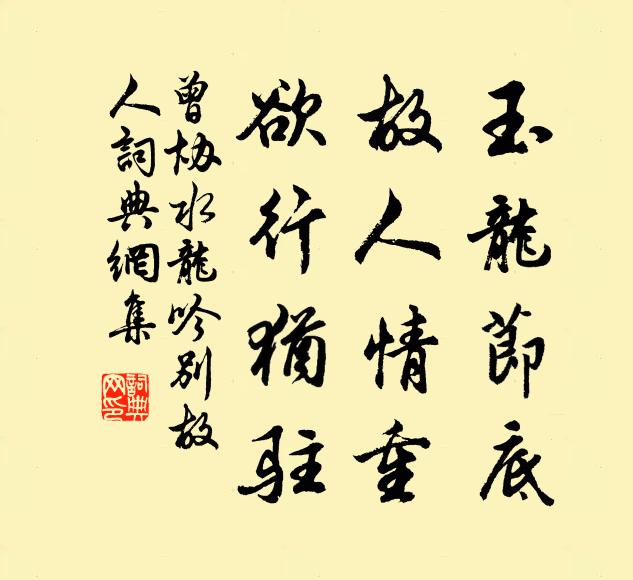 玉龍節底
故人情重
欲行猶駐
曾协水龍吟别故
人詞典網集
詞典網印